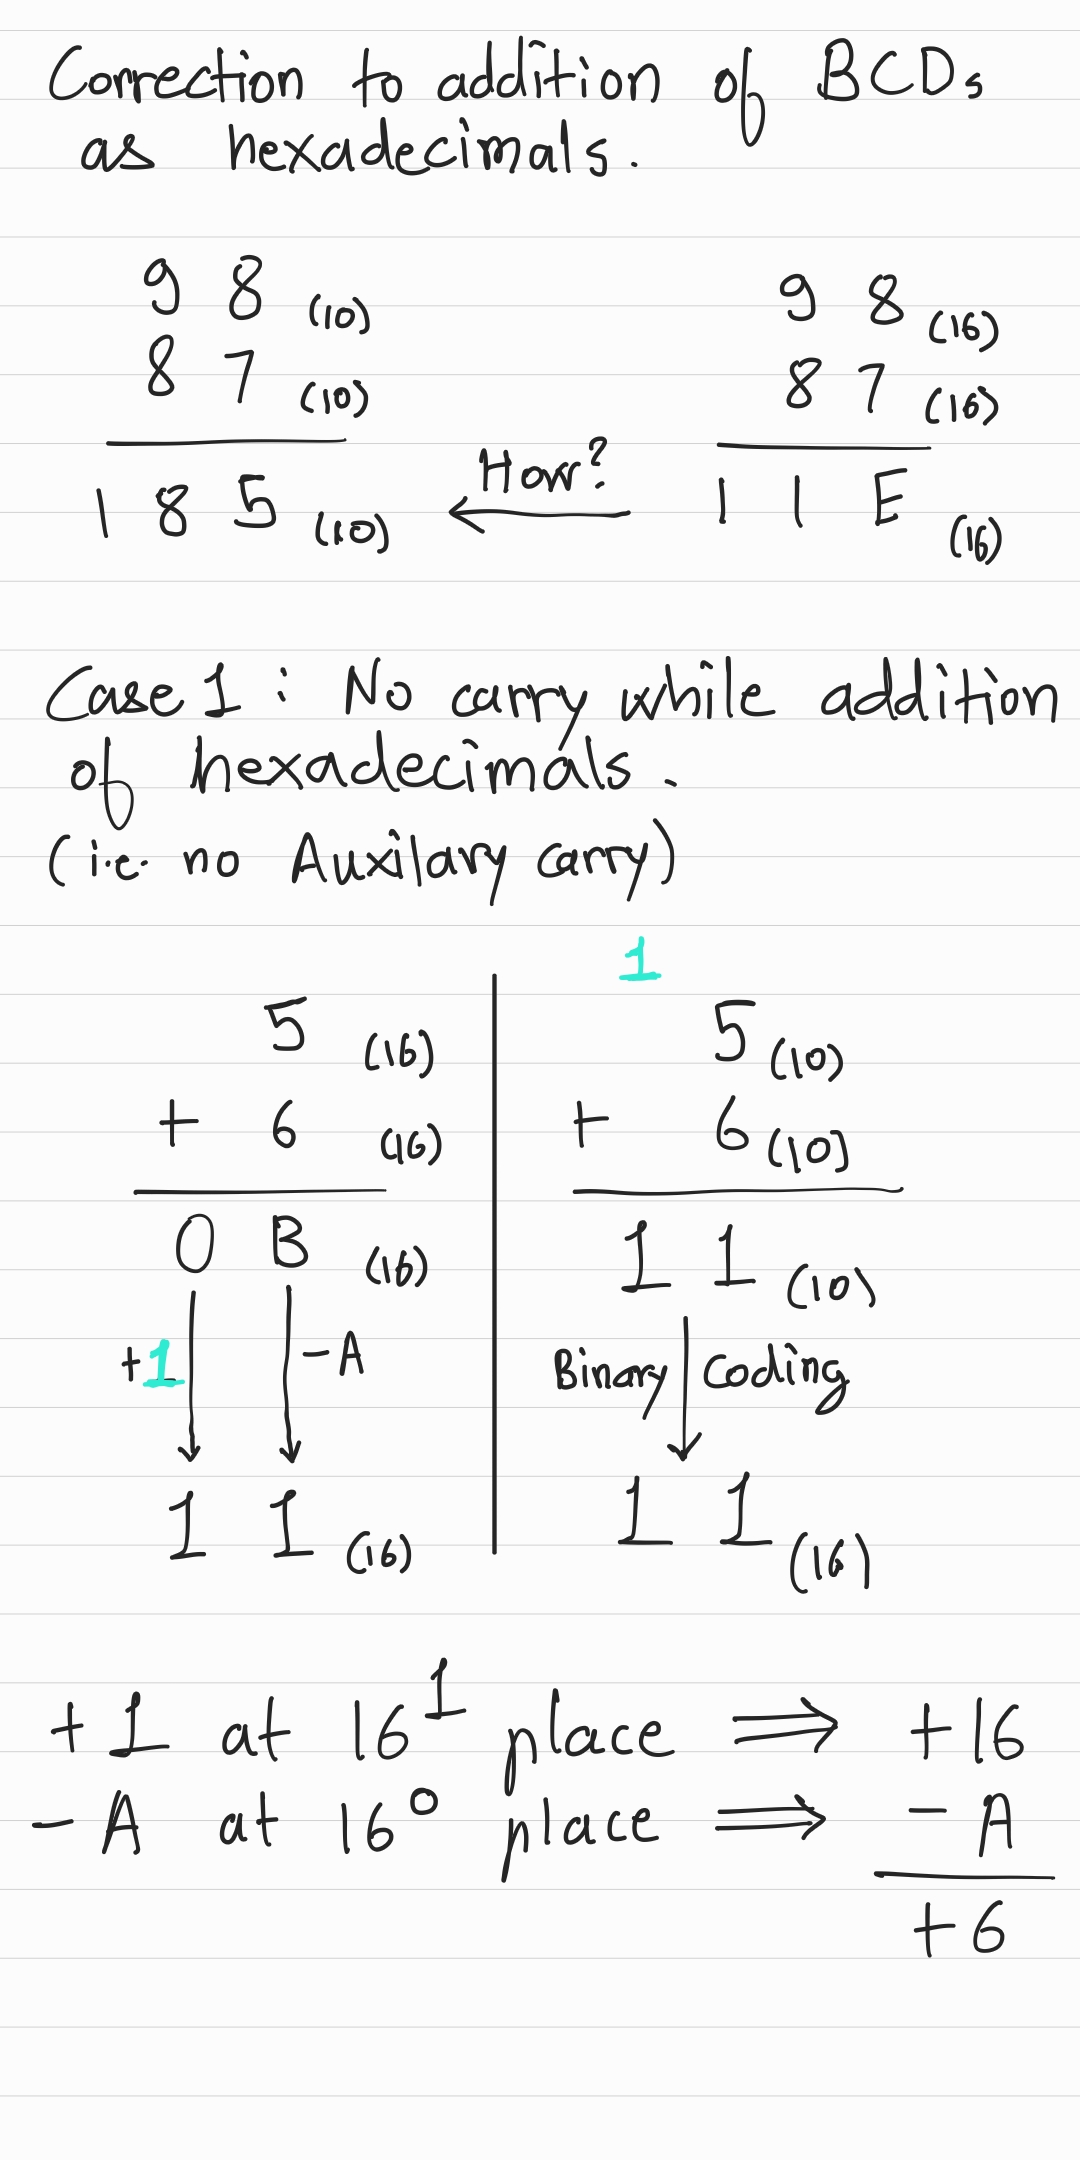 Correction to addition of BCDs
as hexadecimals.
9 8 (10)
8 7 (10)
1 8 5 (10)
How?
9 8 (16)
8 7 (16)
1 1 E (16)
Case 1 : No carry while addition
of hexadecimals.
(i.e. no Auxilary carry)
5 (16)
+ 6 (16)
0 B (16)
+1 -A
1 1 (16)
1
5 (10)
+ 6 (10)
1 1 (10)
Binary Coding
1 1 (16)
+1 at 16¹ place ⟹ +16
-A at 16⁰ place ⟹ -A
+6